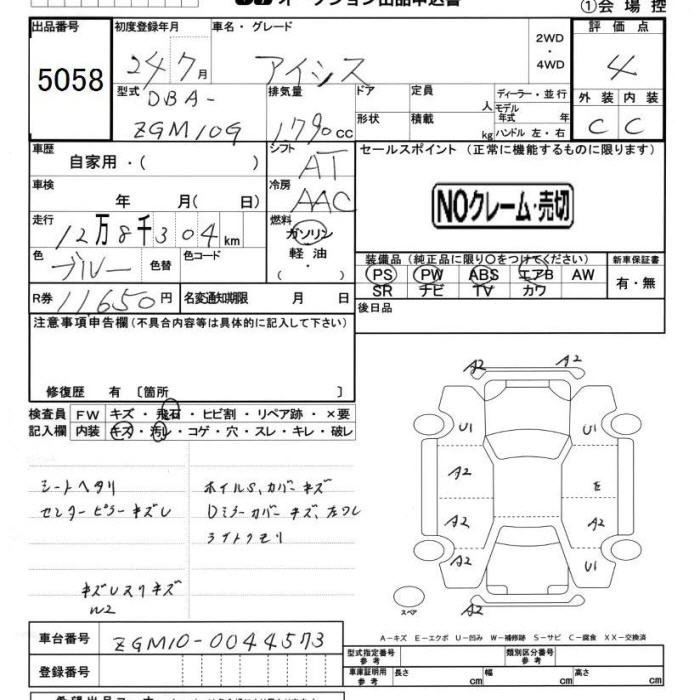 オークション出品申込書 ①会 場 控
出品番号 初度登録年月 車名・グレード 2WD ・ 4WD 評 価 点
5058 24年7月 アイシス 4
型式 排気量 ドア 定員 人 ディーラー・並行 外 装 内 装
DBA-
ZGM10G 1790cc 形状 積載 kg モデル年式 年 ハンドル 左・右 C C
車歴 シフト セールスポイント (正常に機能するものに限ります)
自家用・( ) AT
車検 冷房
年 月( 日) AAC NOクレーム・売切
走行 燃料
12万8千304km ガソリン
色 色替 色コード 軽 油 装備品 (純正品に限り〇をつけてください) 新車保証書
ブルー ・ PS PW ABS エアB AW 有・無
SR ナビ TV カワ
R券 11650円 名変通知期限 月 日 後日品
注意事項申告欄(不具合内容等は具体的に記入して下さい)
修復歴 有 〔箇所 〕
検査員 FW キズ・飛石・ヒビ割・リペア跡・×要
記入欄 内装 キズ・汚レ・コゲ・穴・スレ・キレ・破レ
シートヘタリ ホイルS,カバーキズ
センターピラーキズレ Dミラーカバーキズ、
ライトクモリ
A2 A2
U1 U1
A2 E
A2 A2
A2 U1
A2
スペア
A-キズ E-エクボ U-凹み W-補修跡 S-サビ C-腐食 XX-交換済
車台番号 ZGM10-0044573
登録番号
型式指定番号 参 考 類別区分番号 参 考
車庫証明用 参 考 長さ cm 幅 cm 高さ cm